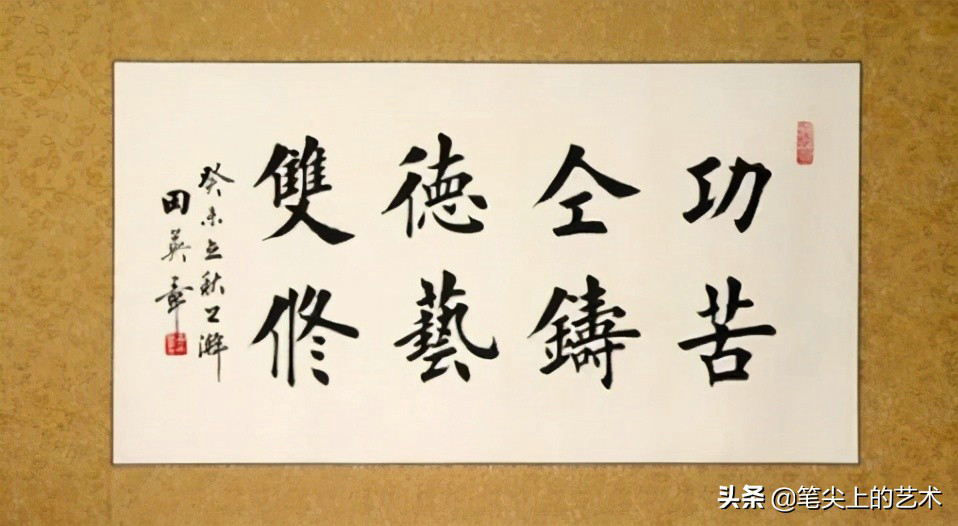 功苦
仝鑄
德藝
雙修
癸未立秋澣
田英章
头条 @笔尖上的艺术